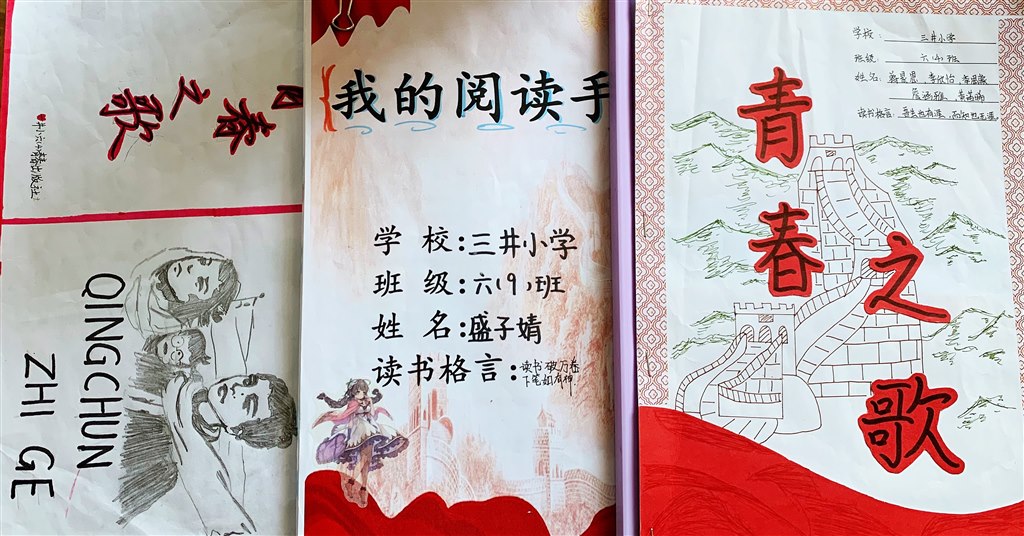 青春
之歌
QINGCHUN
ZHI GE
我的阅读手
学 校:三井小学
班 级:六(9)班
姓 名:盛子婧
读书格言:读书破万卷
下笔如有神
学校: 三井小学
班级: 六(9)班
姓名:
读书格言:
青春之歌